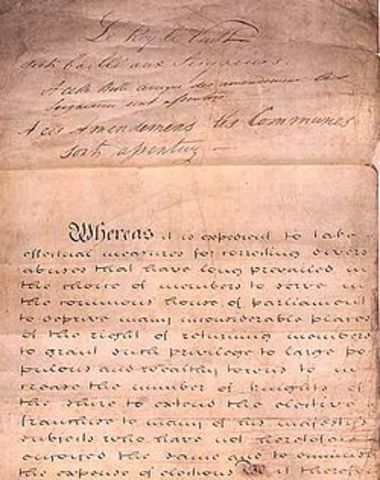 Le Roy le Veult
Soit baillé aux Seigneurs
A ceste Bille avecque des amendemens les
Seigneurs sont assentus
A ces Amendemens les Communes
sont assentuz
Whereas it is expedient to take
effectual measures for correcting divers
abuses that have long prevailed in
the choice of members to serve in
the commons house of parliament
to deprive many inconsiderable places
of the right of returning members
to grant such privilege to large po
pulous and wealthy towns to in
crease the number of knights of
the shire to extend the elective
franchise to many of his majestys
subjects who have not heretofore
enjoyed the same and to diminish
the expense of elections Be it therefore